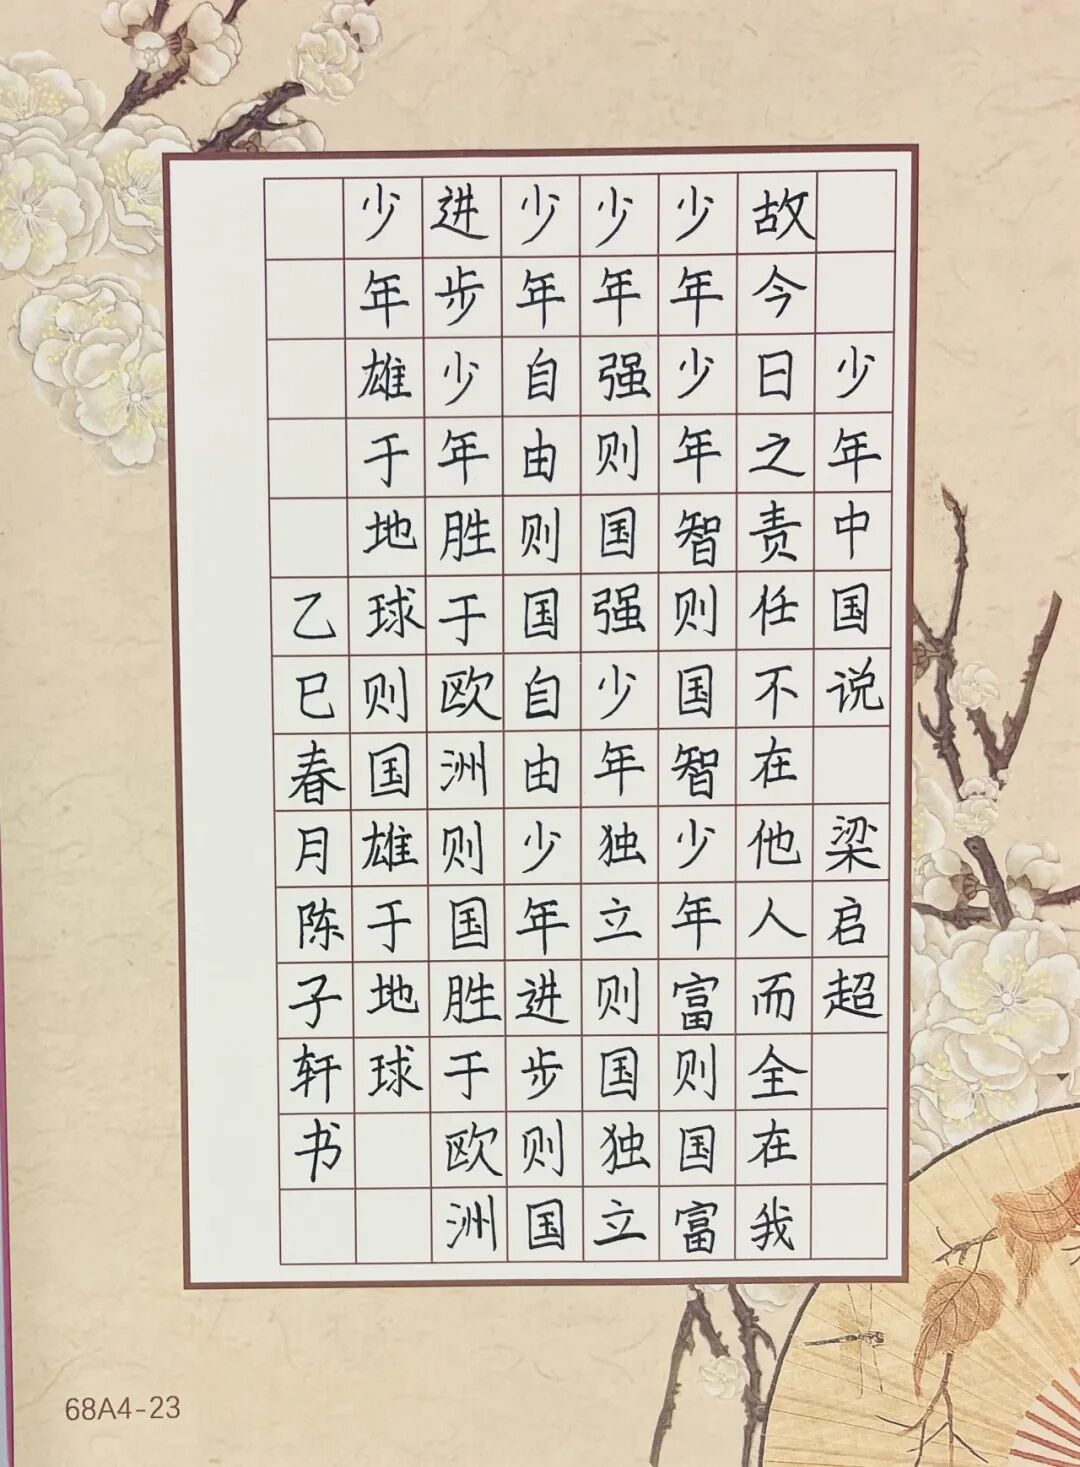 少年中国说 梁启超
故今日之责任不在他人而全在我
少年少年智则国智少年富则国富
少年强则国强少年独立则国独立
少年自由则国自由少年进步则国
进步少年胜于欧洲则国胜于欧洲
少年雄于地球则国雄于地球
乙巳春月陈子轩书
68A4-23